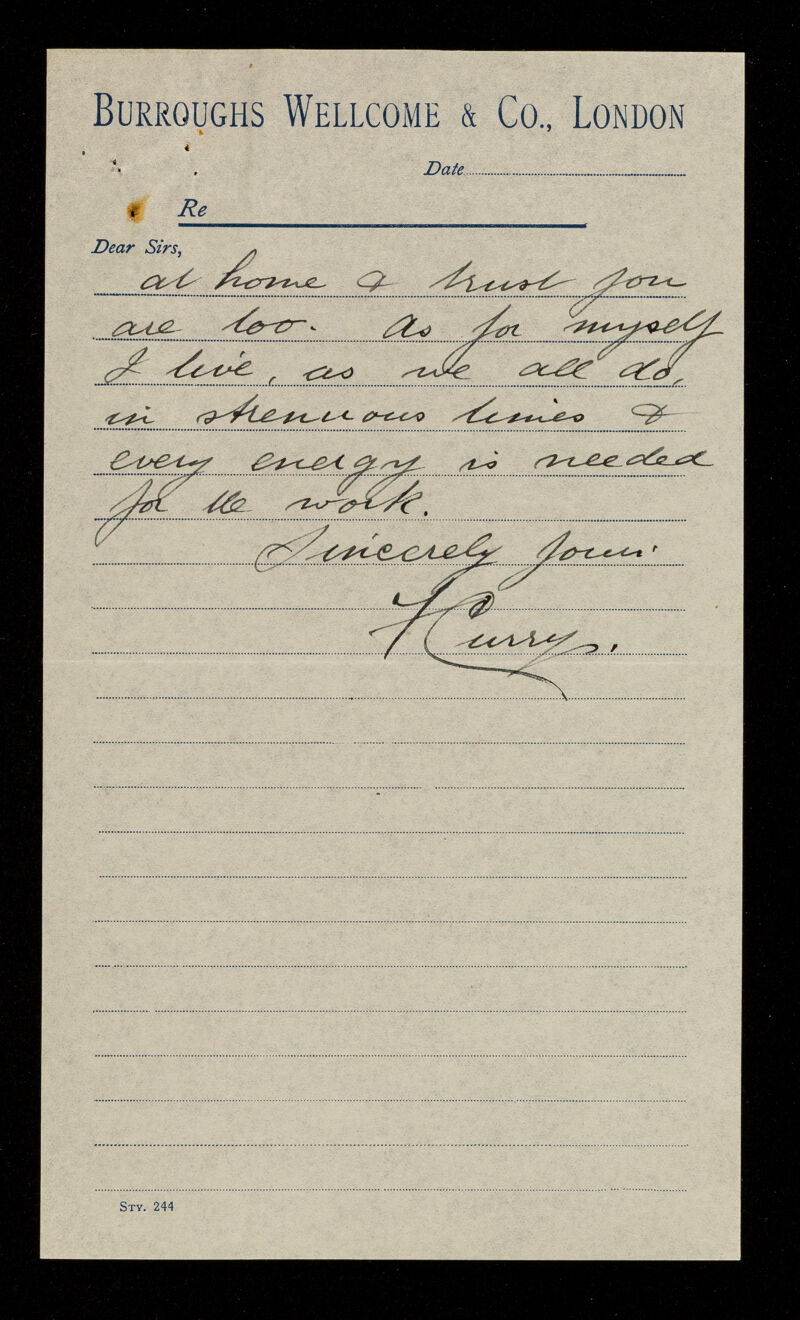 BURROUGHS WELLCOME & CO., LONDON
Date
Re
Dear Sirs,
at home & trust you
are too. As for myself
I live, as we all do,
in strenuous times &
every energy is needed
for the work.
Sincerely yours
Curry.
STY. 244